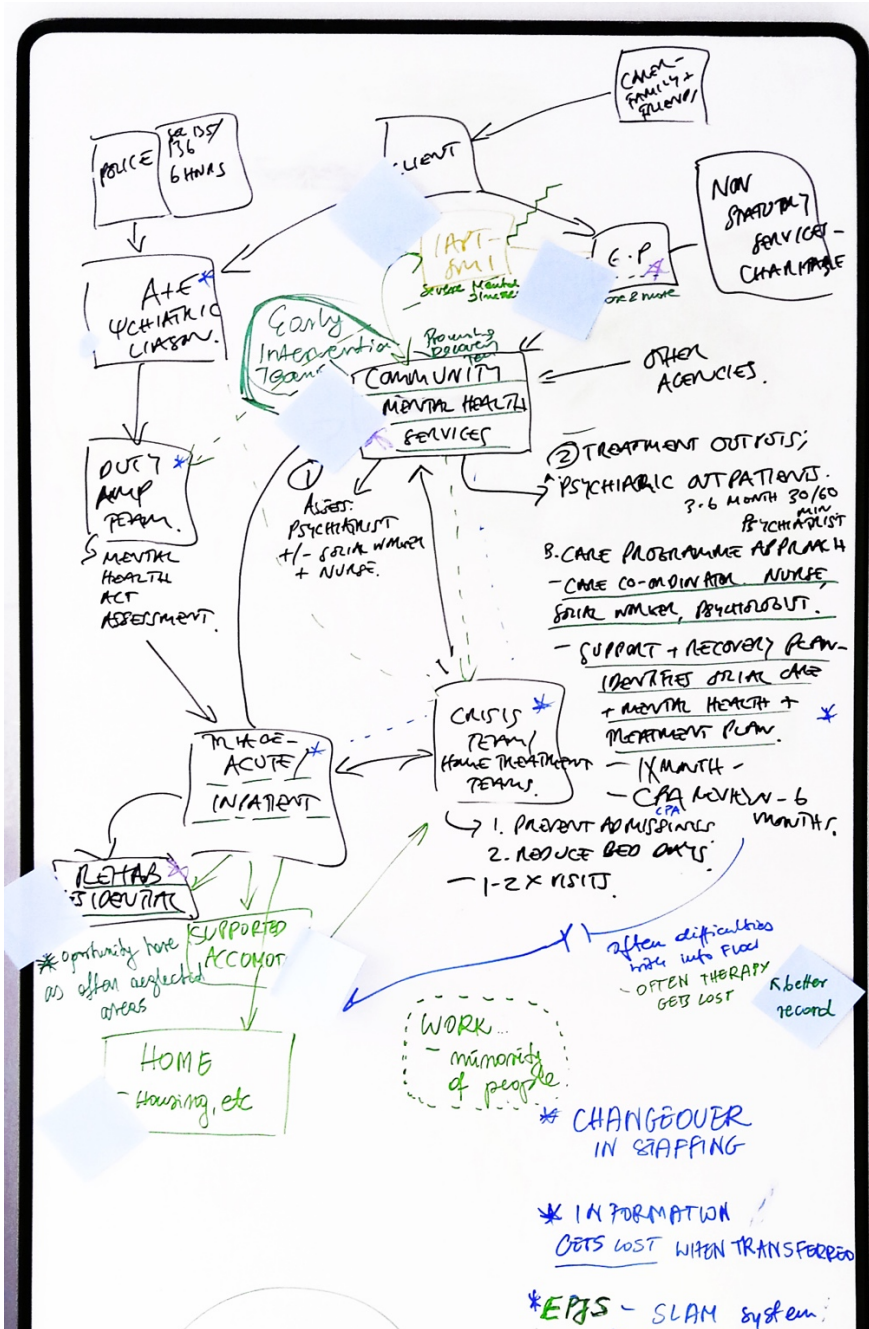 CARER-
FAMILY +
FRIENDS
POLICE
SEC 135/
136
6 HOURS
CLIENT
NON
STATUTORY
SERVICES-
CHARITABLE
IAPT-
SMI
Severe Mental
Illness
G.P
A+E
PSYCHIATRIC
LIASON.
Early
Intervention
Teams
Promoting
Recovery
Team
COMMUNITY
MENTAL HEALTH
SERVICES
OTHER
AGENCIES.
DUTY
AMP
TEAM.
MENTAL
HEALTH
ACT
ASSESSMENT.
1
ASSESS.
PSYCHIATRIST
+/- SOCIAL WORKER
+ NURSE.
2 TREATMENT
PSYCHIATRIC OUTPATIENTS.
3-6 MONTH 30/60
MIN
PSYCHIATRIST
B. CARE PROGRAMME APPROACH
- CARE CO-ORDINATOR. NURSE,
SOCIAL WORKER, PSYCHOLOGIST.
- SUPPORT + RECOVERY PLAN-
IDENTIFIES SOCIAL CARE
+ MENTAL HEALTH +
TREATMENT PLAN.
- 1X MONTH -
- CPA REVIEW - 6
MONTHS.
TRIAGE-
ACUTE/
INPATIENT
CRISIS
TEAM/
HOME TREATMENT
TEAMS.
CPA
1. PREVENT ADMISSIONS
2. REDUCE BED DAYS
- 1-2 X VISITS.
REHAB
SUPPORTED
ACCOMOD
* oportunity here
as often neglected
areas
often difficulties
with info flow
- OFTEN THERAPY
GETS LOST
better
record
HOME
- Housing, etc
WORK...
- minority
of people
* CHANGEOVER
IN STAFFING
* INFORMATION
GETS LOST WHEN TRANSFERRED
* EPJS - SLAM system: